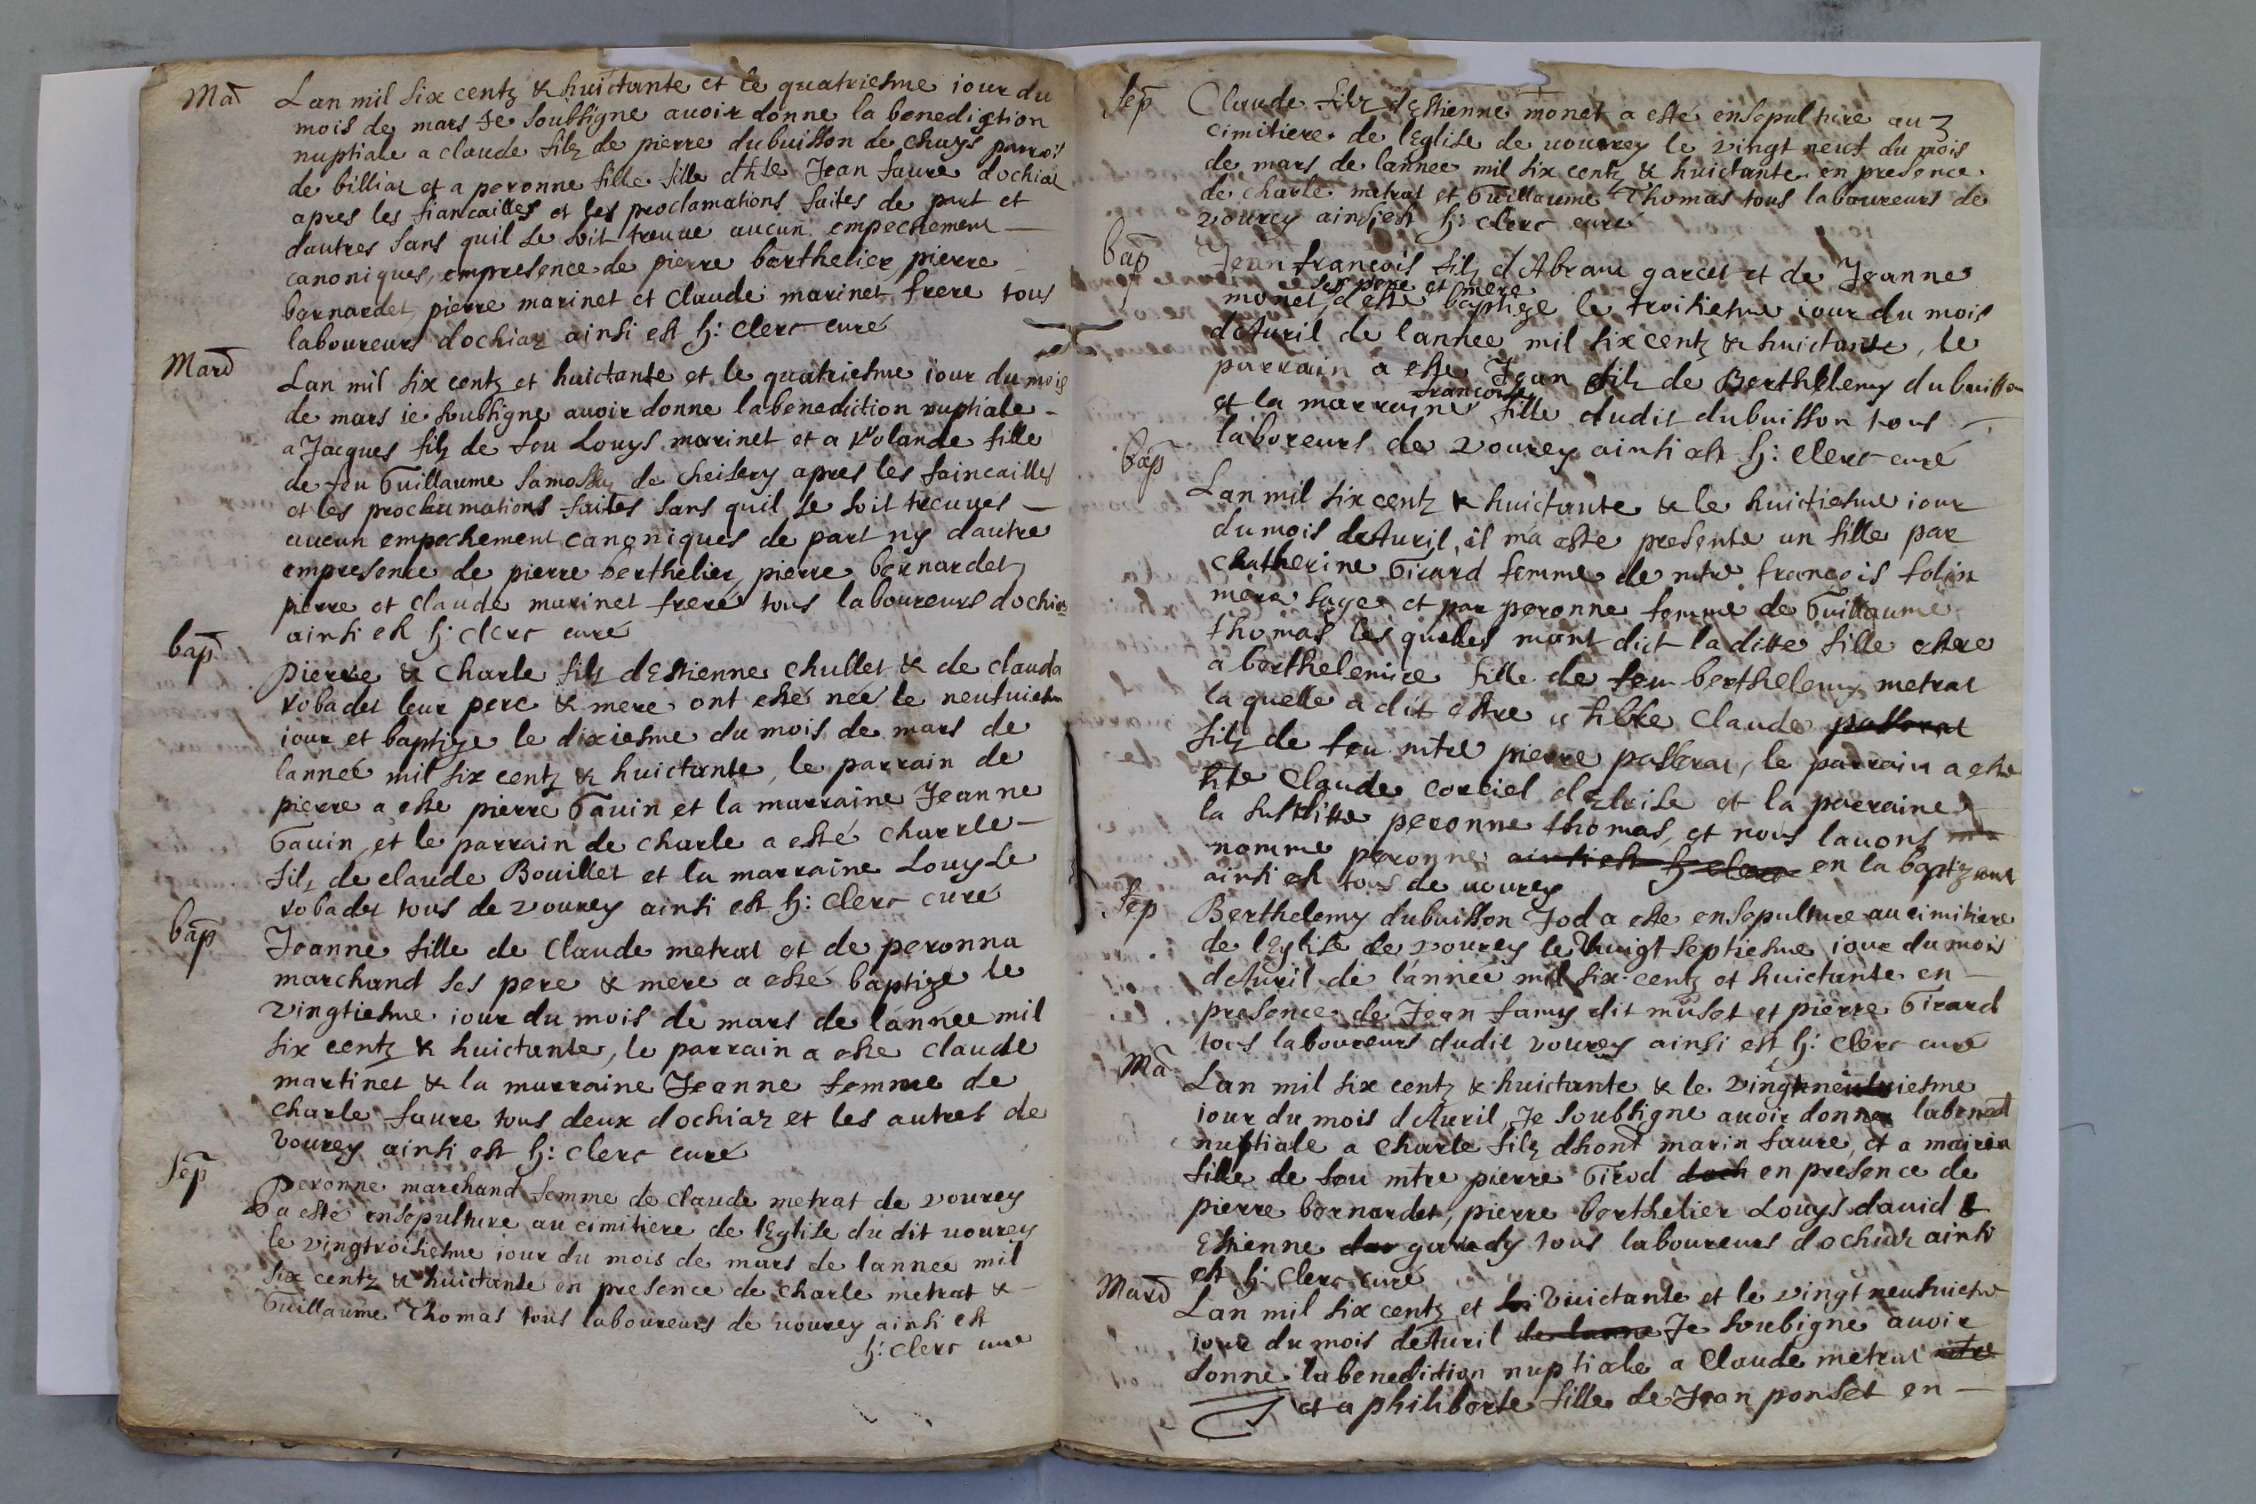 Mar
Lan mil six centz & huictante et le quatriesme iour du
mois de mars Je soubsigne auoir donne la benediction
nuptiale a claude filz de pierre dubuisson de chays parrois
de billiaz et a peronne fille fille dhte Jean faure dochiaz
apres les fiancailles et les proclamations faites de part et
dautres sans quil se soit treuue aucun empechement
canoniques, empresence de pierre berthelier pierre
bernardet, pierre marinet et Claude marinet frere tous
laboureurs dochiaz ainsi est h: Clerc curé
Mard
Lan mil six centz et huictante et le quatriesme iour du mois
de mars ie soubsigne auoir donne la benediction nuptiale
a Jacques filz de feu Louys marinet et a yolande fille
de feu Guillaume de cheisery apres les faincailles
et les proclamations faites sans quil se soit treuues
aucun empechement canoniques de part ny dautre
empresence de pierre berthelier, pierre bernardet,
pierre et claude marinet freré tous laboureurs dochiaz
ainsi est h: clerc curé
bap
Pierre & Charle filz dEstienne chullet & de clauda
robadet leur pere & mere ont esté néé le neufuiesme
iour et baptize le dixiesme du mois de mars de
lanneé mil six centz & huictante, le parrain de
pierre a este pierre Gauin et la marraine Jeanne
Gauin, et le parrain de charle a esté charrle
filz de claude Bouillet et la marraine Louyse
robadet tous de vourey ainsi est h: Clerc curé
bap
Jeanne fille de Claude metrat et de peronna
marchand ses pere & mere a esté baptize le
vingtiesme iour du mois de mars de lánnée mil
six centz & huictante, le parrain a este claude
martinet & la marraine Jeanne femme de
charle faure tous deux dochiaz et les autres de
vourey ainsi est h: clerc curé
sep
Peronne marchand femme de claude metrat de vourey
a este ensepulture au cimitiere de lEglise du dit uourey
le vingtroisiesme iour du mois de mars de lanneé mil
six centz & huictante en presence de charle metrat &
Guillaume Thomas tous laboureurs de uourey ainsi est
h: clerc cure
sep
Claude filz dEstienne monet a esté ensepulture au
cimitiere de lEglise de uourey le vingt neuf du mois
de mars de lannee mil six centz & huictante en presence
de charle metrat et Guillaume Thomas tous laboureurs de
vourey ainsi est h: clerc curé
bap
Jean francois filz dAbram garcet et de Jeanne
ses pere et mere
monet, a esté baptize le troisiesme iour du mois
dAuril de lannee mil six centz & huictante, le
parrain a este Jean filz de Berthelemy dubuisson
francoise
et la marraine fille dudit dubuisson tous
laboreurs de vourey ainsi est h: Clerc curé
bap
Lan mil six centz & huictante & le huictiesme iour
du mois dAuril, il ma este presente un fille par
Chatherine Girard femme de mtre francois folin
mere sage et par peronne femme de Guillaume
thomas les quelles mont dict la ditte fille estre
a berthelemiee fille de feu berthelemy metrat
la quelle a dit estre a Claude passerat
filz de feu mtre pierre passerat, le parrain a este
hte Claude corciel dEloise et la parraine
la susditte peronne thomas, et nous lauons
nomme peronne ainsi est h clerc en la baptizant
ainsi est tous de uourey
Sep
Berthelemy dubuisson Jod a este ensepulture au cimitiere
de lEglise de vourey le Vuingt septiesme iour du mois
dAuril de lánneé mil six centz et huictante en
presence de Jean famy dit muset et pierre Girard
tous laboureurs dudit vourey ainsi est h: Clerc curé
Ma
Lan mil six centz & huictante & le vingtneufuiesme
iour du mois dAuril, Je soubsigne auoir donner labened
nuptiale a Charle filz dhont marin faure, et a
fille de feu mtre pierre Girod doch en presence de
pierre bernardet, pierre berthelier Louys dauid &
Estienne tous laboureurs dochiaz ainsi
est h: Clerc curé
Mard
Lan mil six centz et Vuictante et le vingt neufuiesme
iour du mois dAuril de lanne Je soubigné auoir
donné la benediction nuptiale a Claude metrat
et a philiberte fille de Jean ponset en